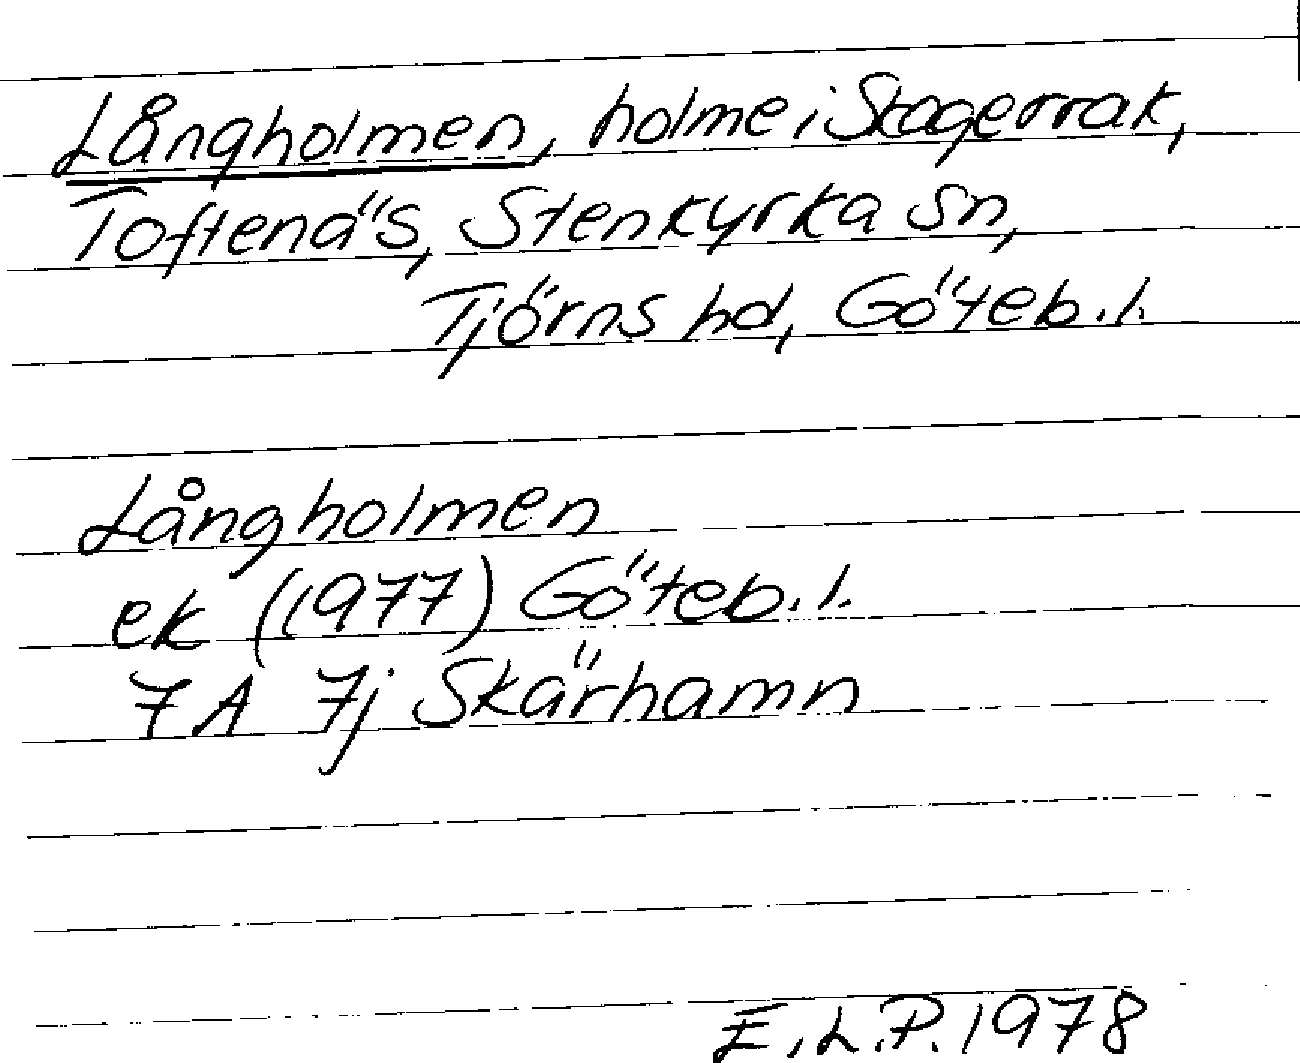 Långholmen, holme i Skagerrak,
Toftenäs, Stenkyrka sn,
Tjörns hd, Göteb. l.
Långholmen
ek (1977) Göteb. l.
7A 7j Skärhamn
E.L.P. 1978